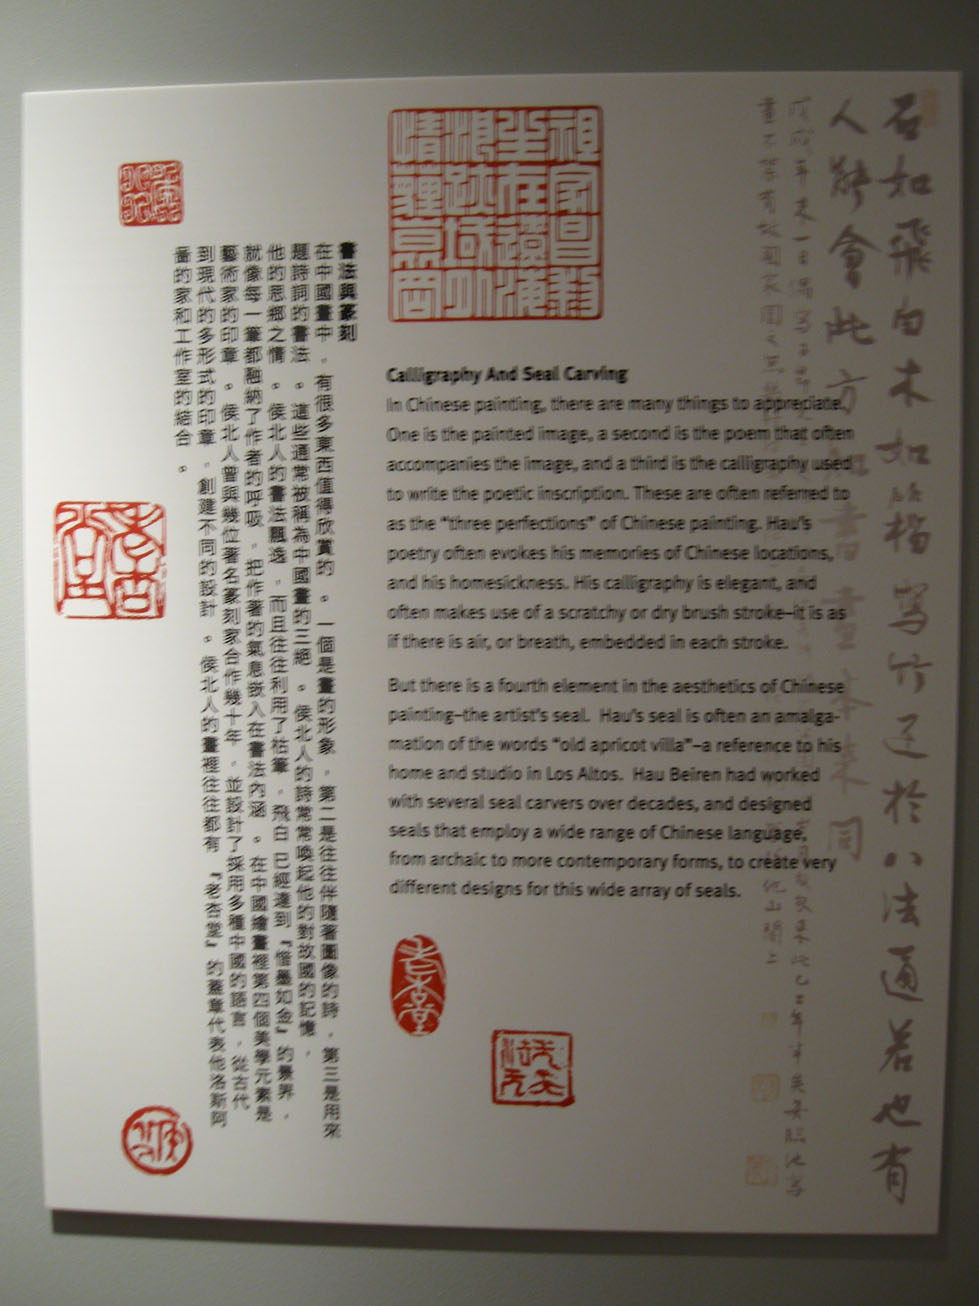 石如飛白木如籀寫竹還於八法通若也有
人能會此方知書畫本來同
祖家昌黎
生在遼海
浪跡域外
Calligraphy And Seal Carving
In Chinese painting, there are many things to appreciate.
One is the painted image, a second is the poem that often
accompanies the image, and a third is the calligraphy used
to write the poetic inscription. These are often referred to
as the "three perfections" of Chinese painting. Hau's
poetry often evokes his memories of Chinese locations,
and his homesickness. His calligraphy is elegant, and
often makes use of a scratchy or dry brush stroke–it is as
if there is air, or breath, embedded in each stroke.
But there is a fourth element in the aesthetics of Chinese
painting–the artist's seal. Hau's seal is often an amalga-
mation of the words "old apricot villa"–a reference to his
home and studio in Los Altos. Hau Beiren had worked
with several seal carvers over decades, and designed
seals that employ a wide range of Chinese language,
from archaic to more contemporary forms, to create very
different designs for this wide array of seals.
老杏堂
書法與篆刻
在中國畫中，有很多東西值得欣賞的。一個是畫的形象，第二是往往伴隨著圖像的詩，第三是用來
題詩詞的書法。這些通常被稱為中國畫的三絕。侯北人的詩常常喚起他的對故國的記憶，
他的思鄉之情。侯北人的書法飄逸，而且往往利用了枯筆，飛白已經達到『惜墨如金』的景界，
就像每一筆都融納了作者的呼吸，把作著的氣息嵌入在書法內涵。在中國繪畫裡第四個美學元素是
藝術家的印章。侯北人曾與幾位著名篆刻家合作幾十年，並設計了採用多種中國的語言，從古代
到現代的多形式的印章，創建不同的設計。侯北人的畫裡往往都有『老杏堂』的蓋章代表他洛斯阿
啚的家和工作室的結合。
老杏堂